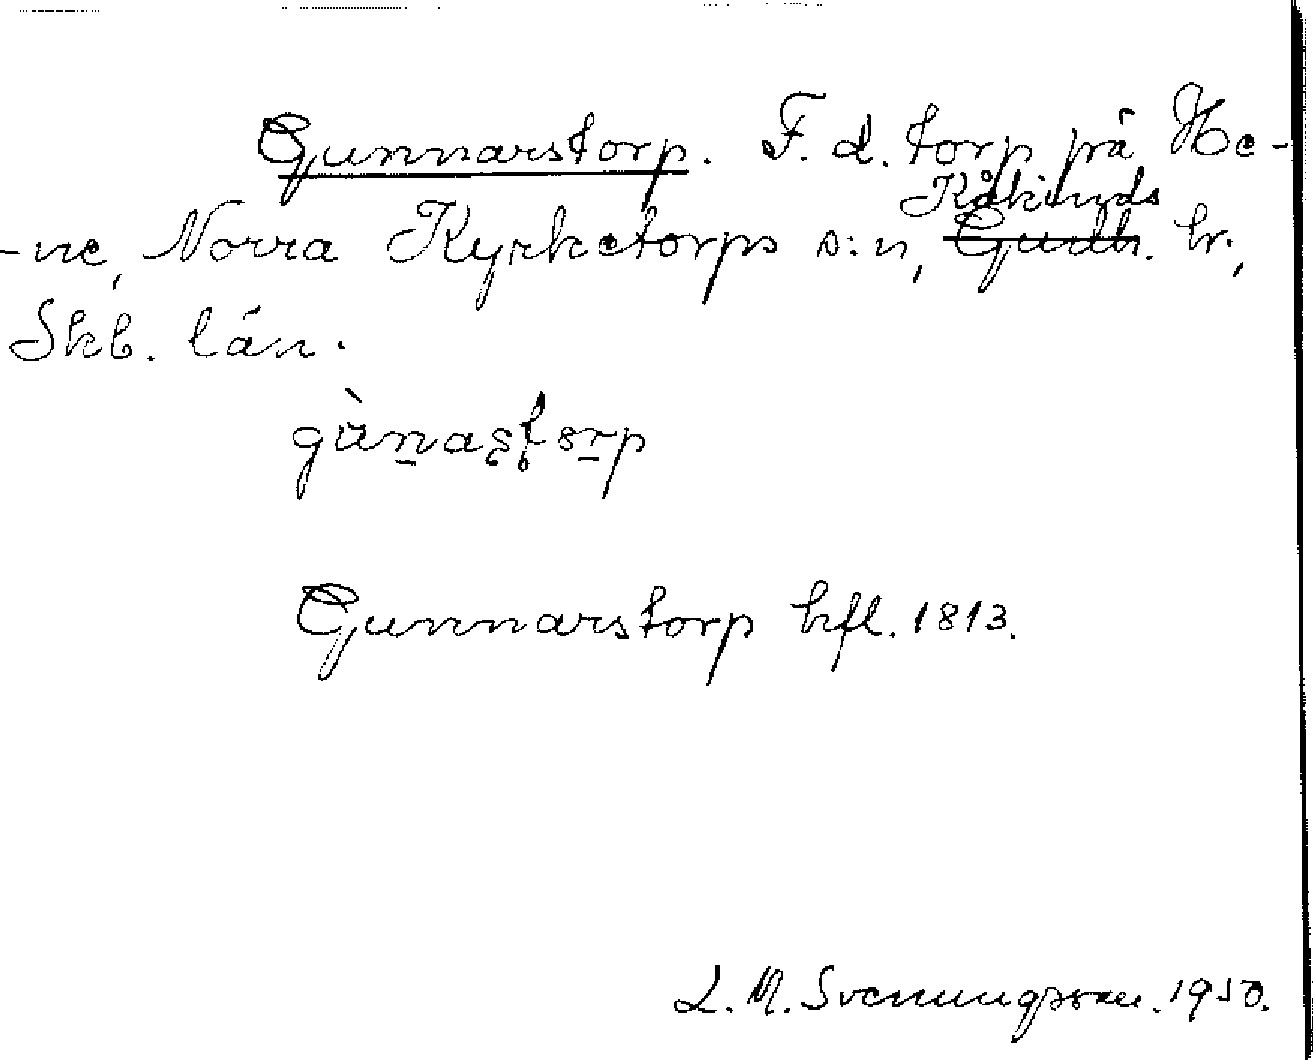 Gunnarstorp. F. d. torp på He-
-ne, Norra Kyrketorps s:n, Kåkinds hr.,
Skb. län.
Gunnarstorp hfl. 1813.
L. M. Svenungsson. 1950.